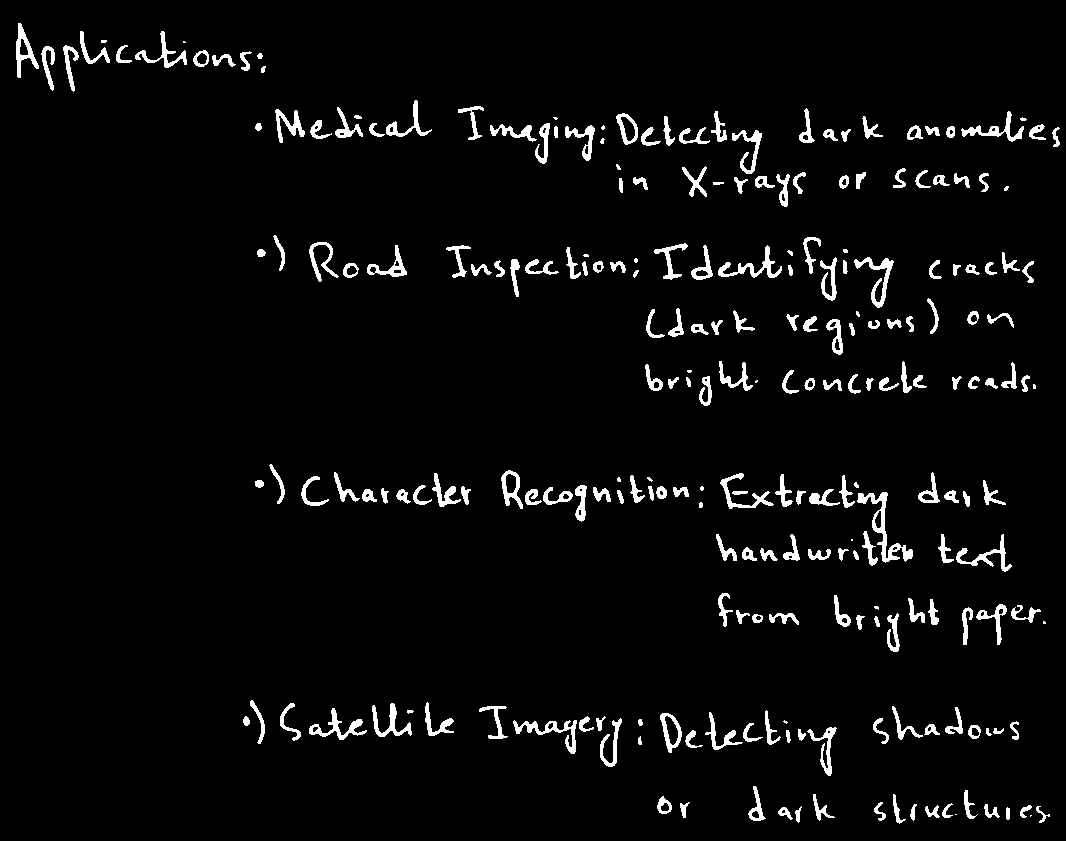 Applications:
· Medical Imaging: Detecting dark anomalies
in X-rays or scans.
·) Road Inspection: Identifying cracks
(dark regions) on
bright concrete roads.
·) Character Recognition: Extracting dark
handwritten text
from bright paper.
·) Satellite Imagery: Detecting shadows
or dark structures.